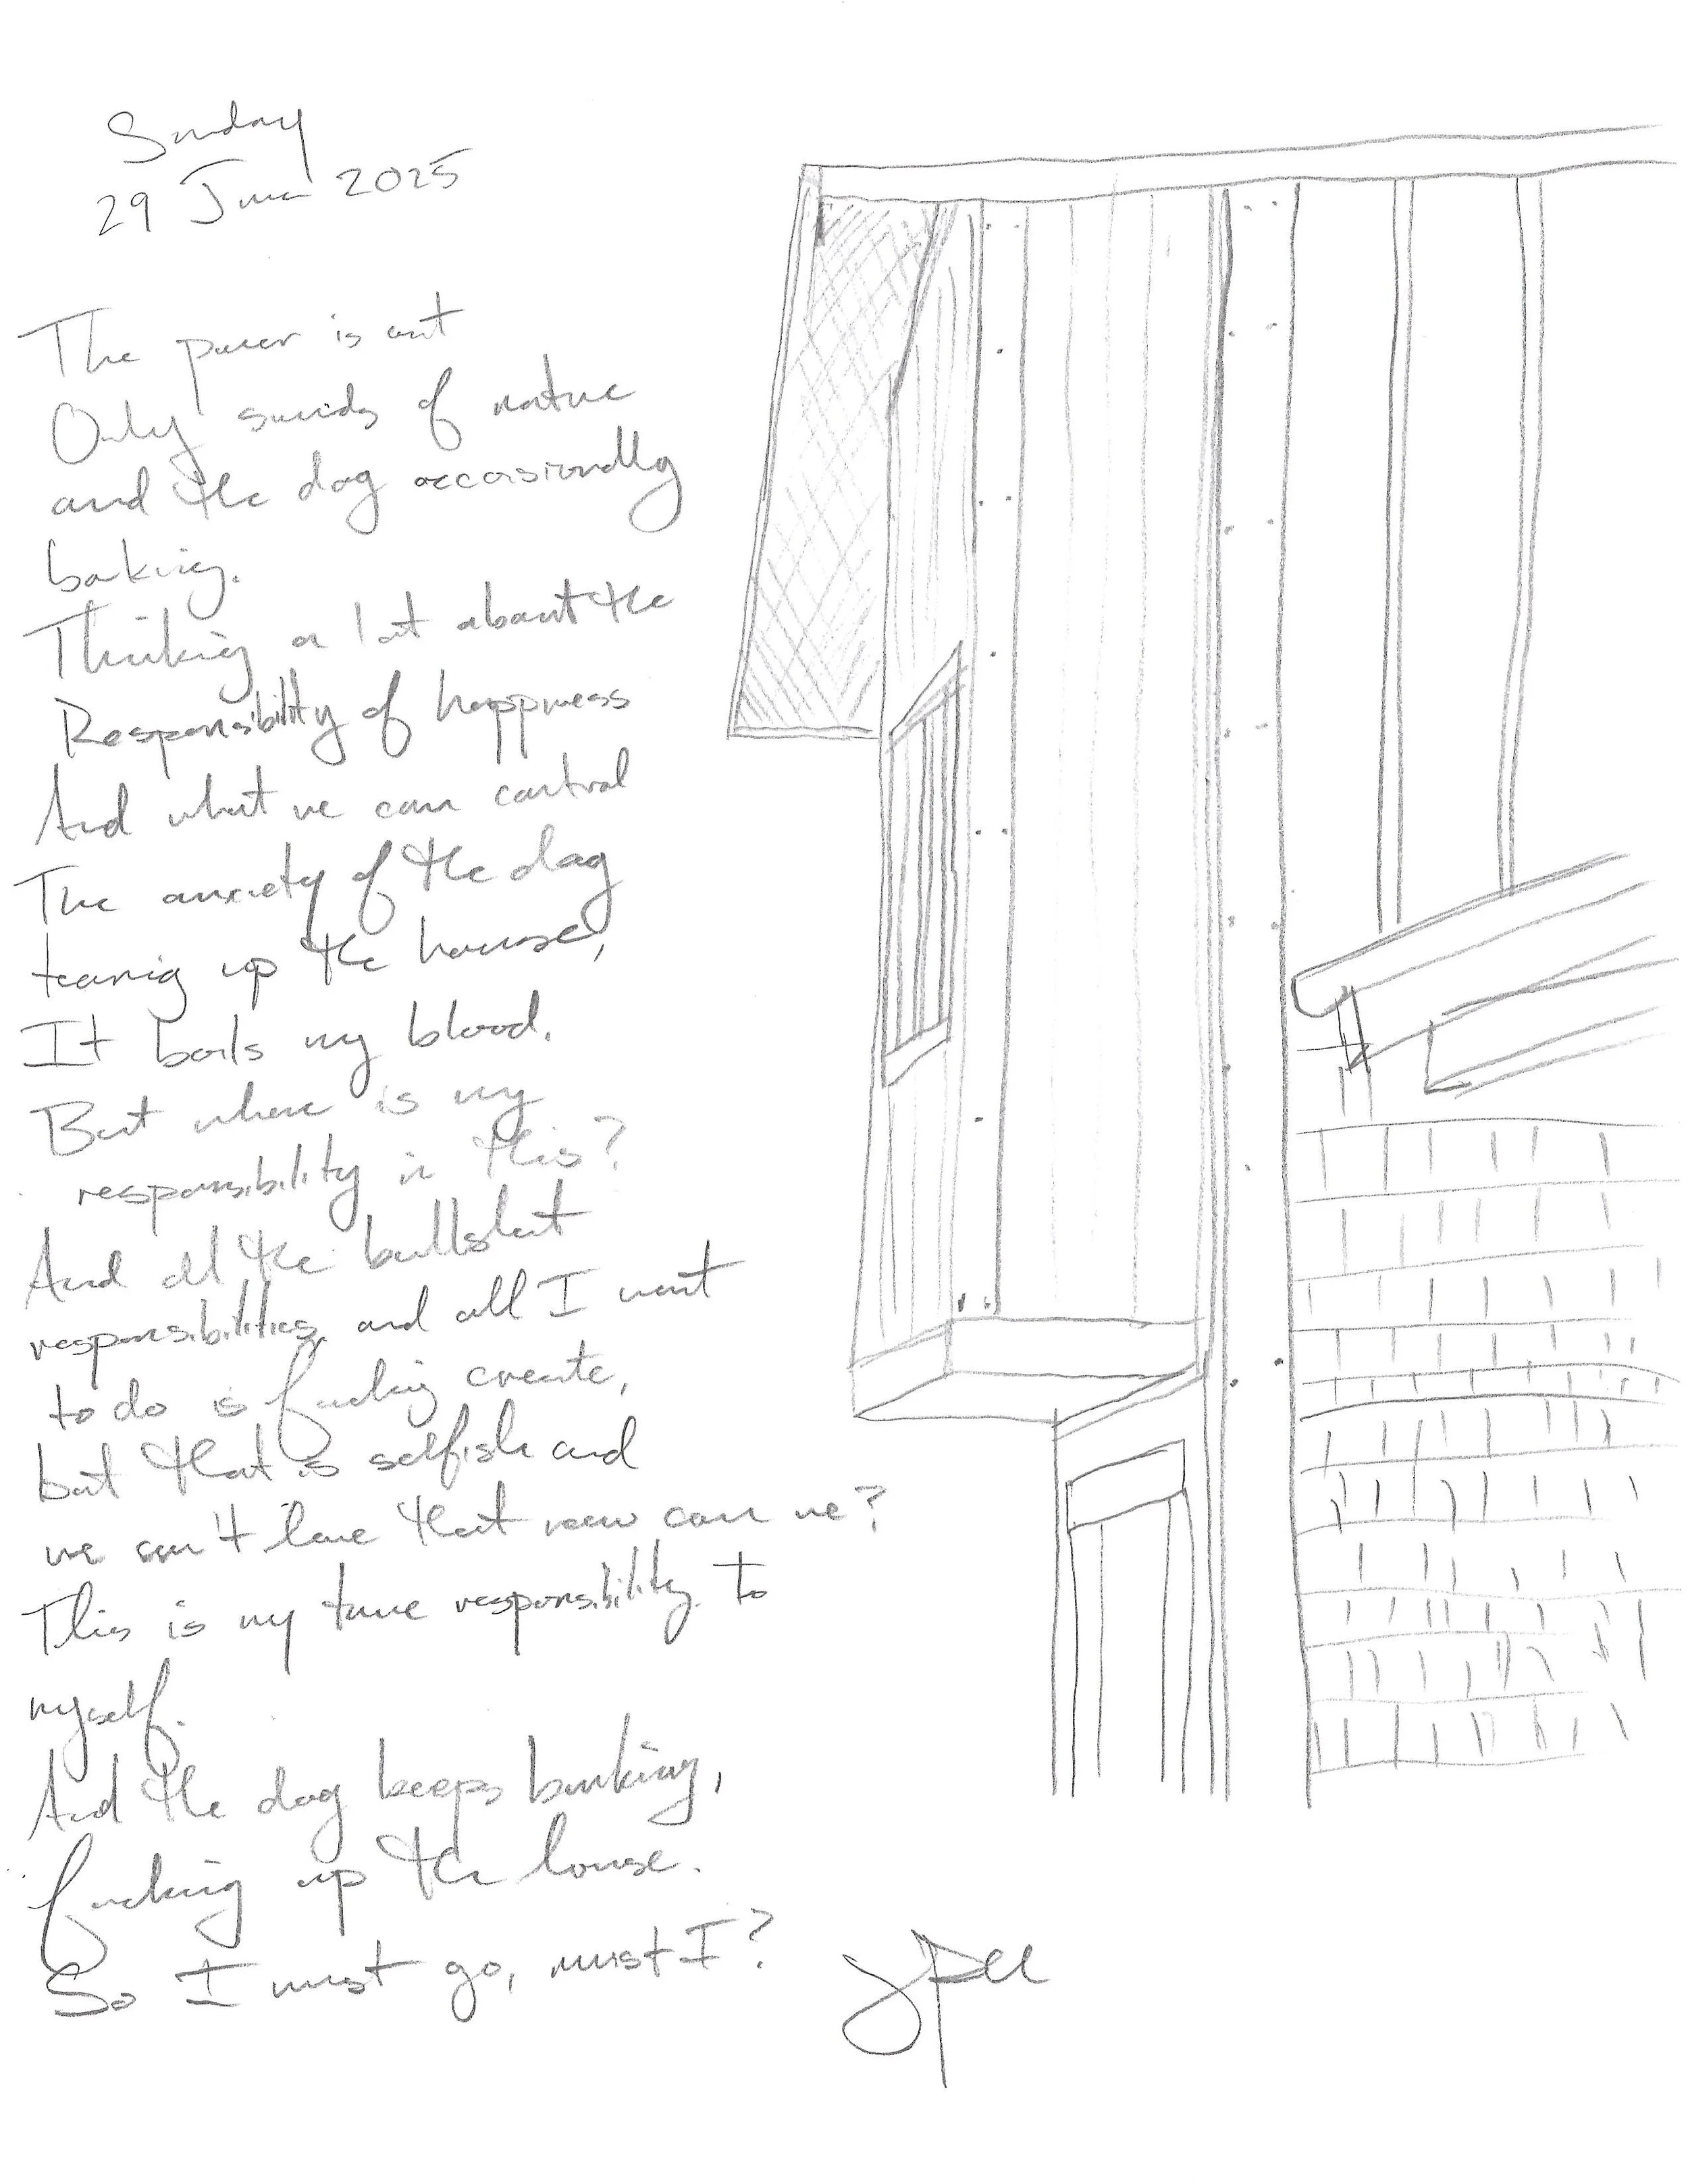 Sunday
29 June 2025
The power is out
Only sounds of nature
and the dog occasionally
barking.
Thinking a lot about the
Responsibility of happiness
And what we can control
The anxiety of the dog
tearing up the house,
It boils my blood.
But where is my
responsibility in this?
And all the bullshit
responsibilities, and all I want
to do is fucking create,
but that is selfish and
we can't have that now can we?
This is my true responsibility. to
myself.
And the dog keeps barking,
fucking up the house.
So I must go, must I?